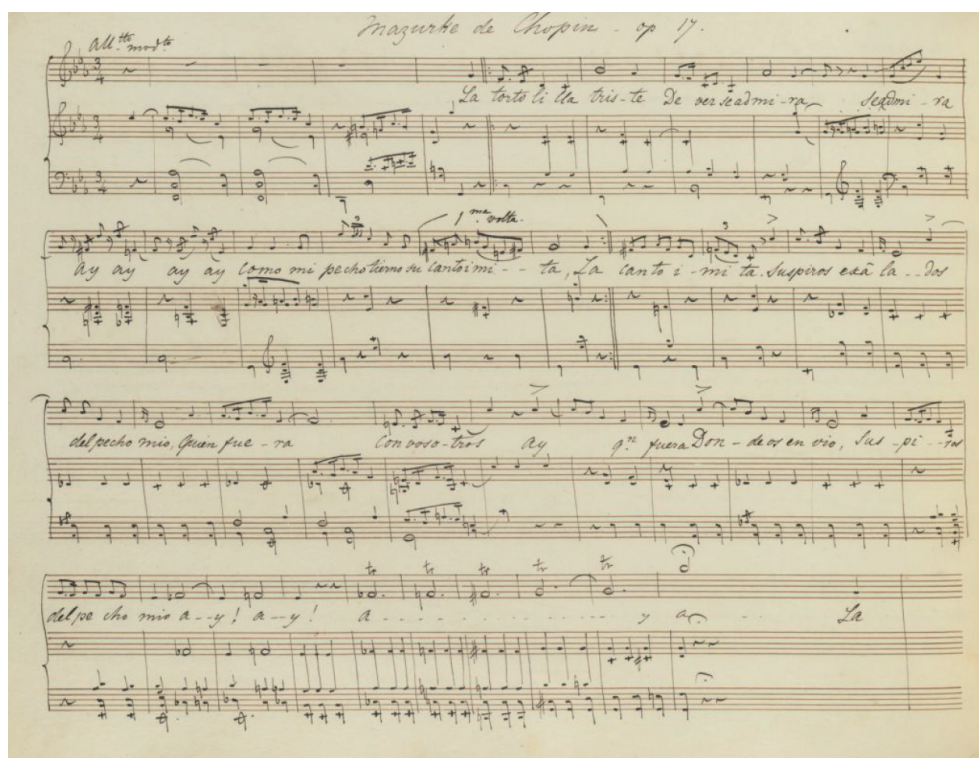 Mazurke de Chopin - op 17.
All.tto mod.to
La tortolilla tris-te De verseadmi-ra, seadmi-ra
1ma volta.
ay ay ay ay como mi pechotierno su cantoimi--ta, La canto i-mita. Suspiros exâla--dos
3
del pecho mio, Quien fue-ra Con voso-tros ay q.n fuera Don-de os en vio, Sus-pi--ros
tr tr tr tr tr
del pe cho mio a--y! a--y! a - - - - - y a - - La